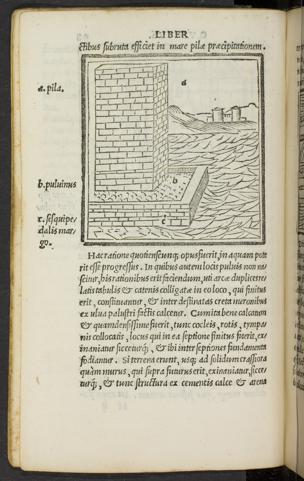 LIBER
ctibus subruta efficiet in mare pilæ præcipitationem.
a
a. pila.
b. puluinus
c. sesquipe
dalis mar
go.
b
c
Hac ratione quotienscunq; opus fuerit, in aquam pote
rit esse progressus. In quibus autem locis puluis non na
scitur, his rationibus erit faciendum, uti arcæ duplices re
latis tabulis & catenis colligatæ in eo loco, qui finitus
erit, constituantur, & inter destinas creta meronibus
ex ulua palustri factis calcetur. Cum ita bene calcatum
& quamdensissime fuerit, tunc cocleis, rotis, tympa
nis collocatis, locus qui in ea septione finitus fuerit, ex
inaniatur sicceturq;, & ibi inter septiones fundamenta
fodiantur. Si terrena erunt, usq; ad solidum crassiora
quàm murus, qui supra futurus erit, exinaniatur, sicce
turq;, & tunc structura ex cementis calce & arena